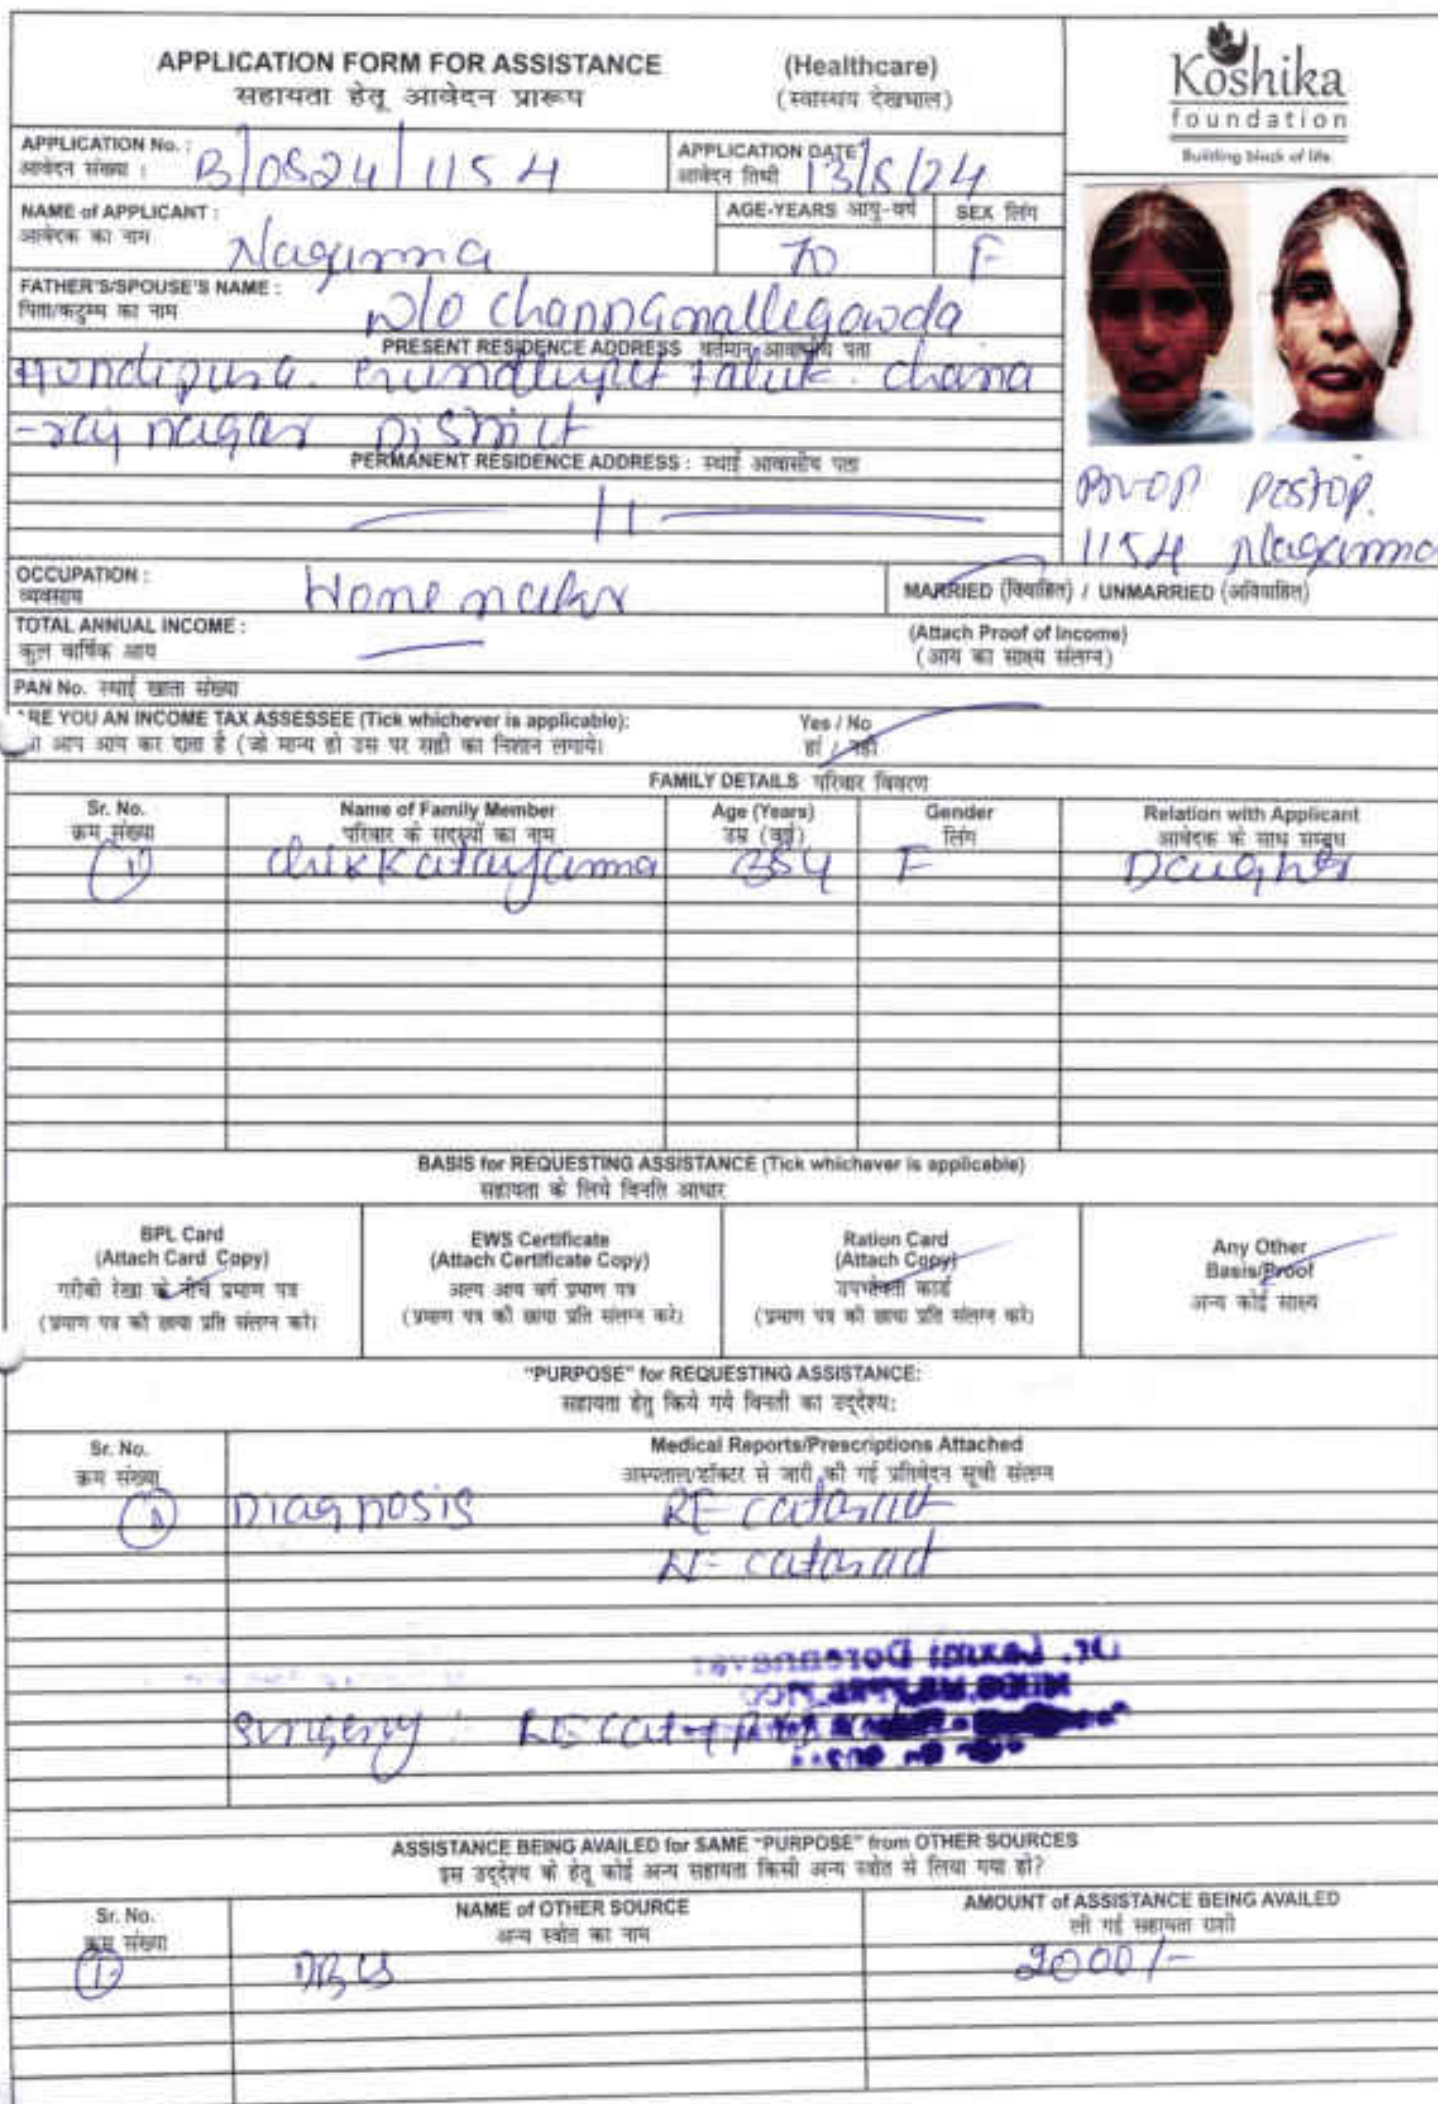 APPLICATION FORM FOR ASSISTANCE (Healthcare)
सहायता हेतू आवेदन प्रारूप (स्वास्थय देखभाल)
Koshika
foundation
Building block of life
APPLICATION No. :
आवेदन संख्या : B/0824/1154
APPLICATION DATE
आवेदन तिथी 13/8/24
NAME of APPLICANT :
आवेदक का नाम Nagamma
AGE-YEARS आयु-वर्ष 70
SEX लिंग F
FATHER'S/SPOUSE'S NAME :
पिता/कटुम्ब का नाम W/o channamallegowda
PRESENT RESIDENCE ADDRESS वर्तमान आवासीय पता
Hundipura. Gundlupet taluk. chama
-raj nagar District
PERMANENT RESIDENCE ADDRESS : स्थाई आवासीय पता
— 11 —
Pre-OP Postop.
1154 Nagamma
OCCUPATION :
व्यवसाय Home maker
MARRIED (विवाहित) / UNMARRIED (अविवाहित)
TOTAL ANNUAL INCOME :
कुल वार्षिक आय —
(Attach Proof of Income)
(आय का साक्ष्य संलग्न)
PAN No. स्थाई खाता संख्या
ARE YOU AN INCOME TAX ASSESSEE (Tick whichever is applicable): Yes / No
आप आय कर दाता है (जो मान्य हो उस पर सही का निशान लगाये। हां / नही
FAMILY DETAILS परिवार विवरण
Sr. No. Name of Family Member Age (Years) Gender Relation with Applicant
क्रम संख्या परिवार के सदस्यों का नाम उम्र (वर्ष) लिंग आवेदक के साथ सम्बन्ध
1) chikkatayamma 354 F Daughter
BASIS for REQUESTING ASSISTANCE (Tick whichever is applicable)
सहायता के लिये विनति आधार
BPL Card
(Attach Card Copy)
गरीबी रेखा के नीचे प्रमाण पत्र
(प्रमाण पत्र की छाया प्रति संलग्न करे।
EWS Certificate
(Attach Certificate Copy)
अल्प आय वर्ग प्रमाण पत्र
(प्रमाण पत्र की छाया प्रति संलग्न करे।
Ration Card
(Attach Copy)
उपभोक्ता कार्ड
(प्रमाण पत्र की छाया प्रति संलग्न करे।
Any Other
Basis/Proof
अन्य कोई साक्ष्य
"PURPOSE" for REQUESTING ASSISTANCE:
सहायता हेतु किये गये विनती का उद्देश्य:
Sr. No. Medical Reports/Prescriptions Attached
क्रम संख्या अस्पताल/डॉक्टर से जारी की गई प्रतिवेदन सूची संलग्न
Diagnosis RE cataract
LE- cataract
Surgery : LE cat +
ASSISTANCE BEING AVAILED for SAME "PURPOSE" from OTHER SOURCES
इस उद्देश्य के हेतू कोई अन्य सहायता किसी अन्य स्त्रोत से लिया गया हो?
Sr. No. NAME of OTHER SOURCE AMOUNT of ASSISTANCE BEING AVAILED
क्रम संख्या अन्य स्त्रोत का नाम ली गई सहायता राशी
1 DBCS 2000/-